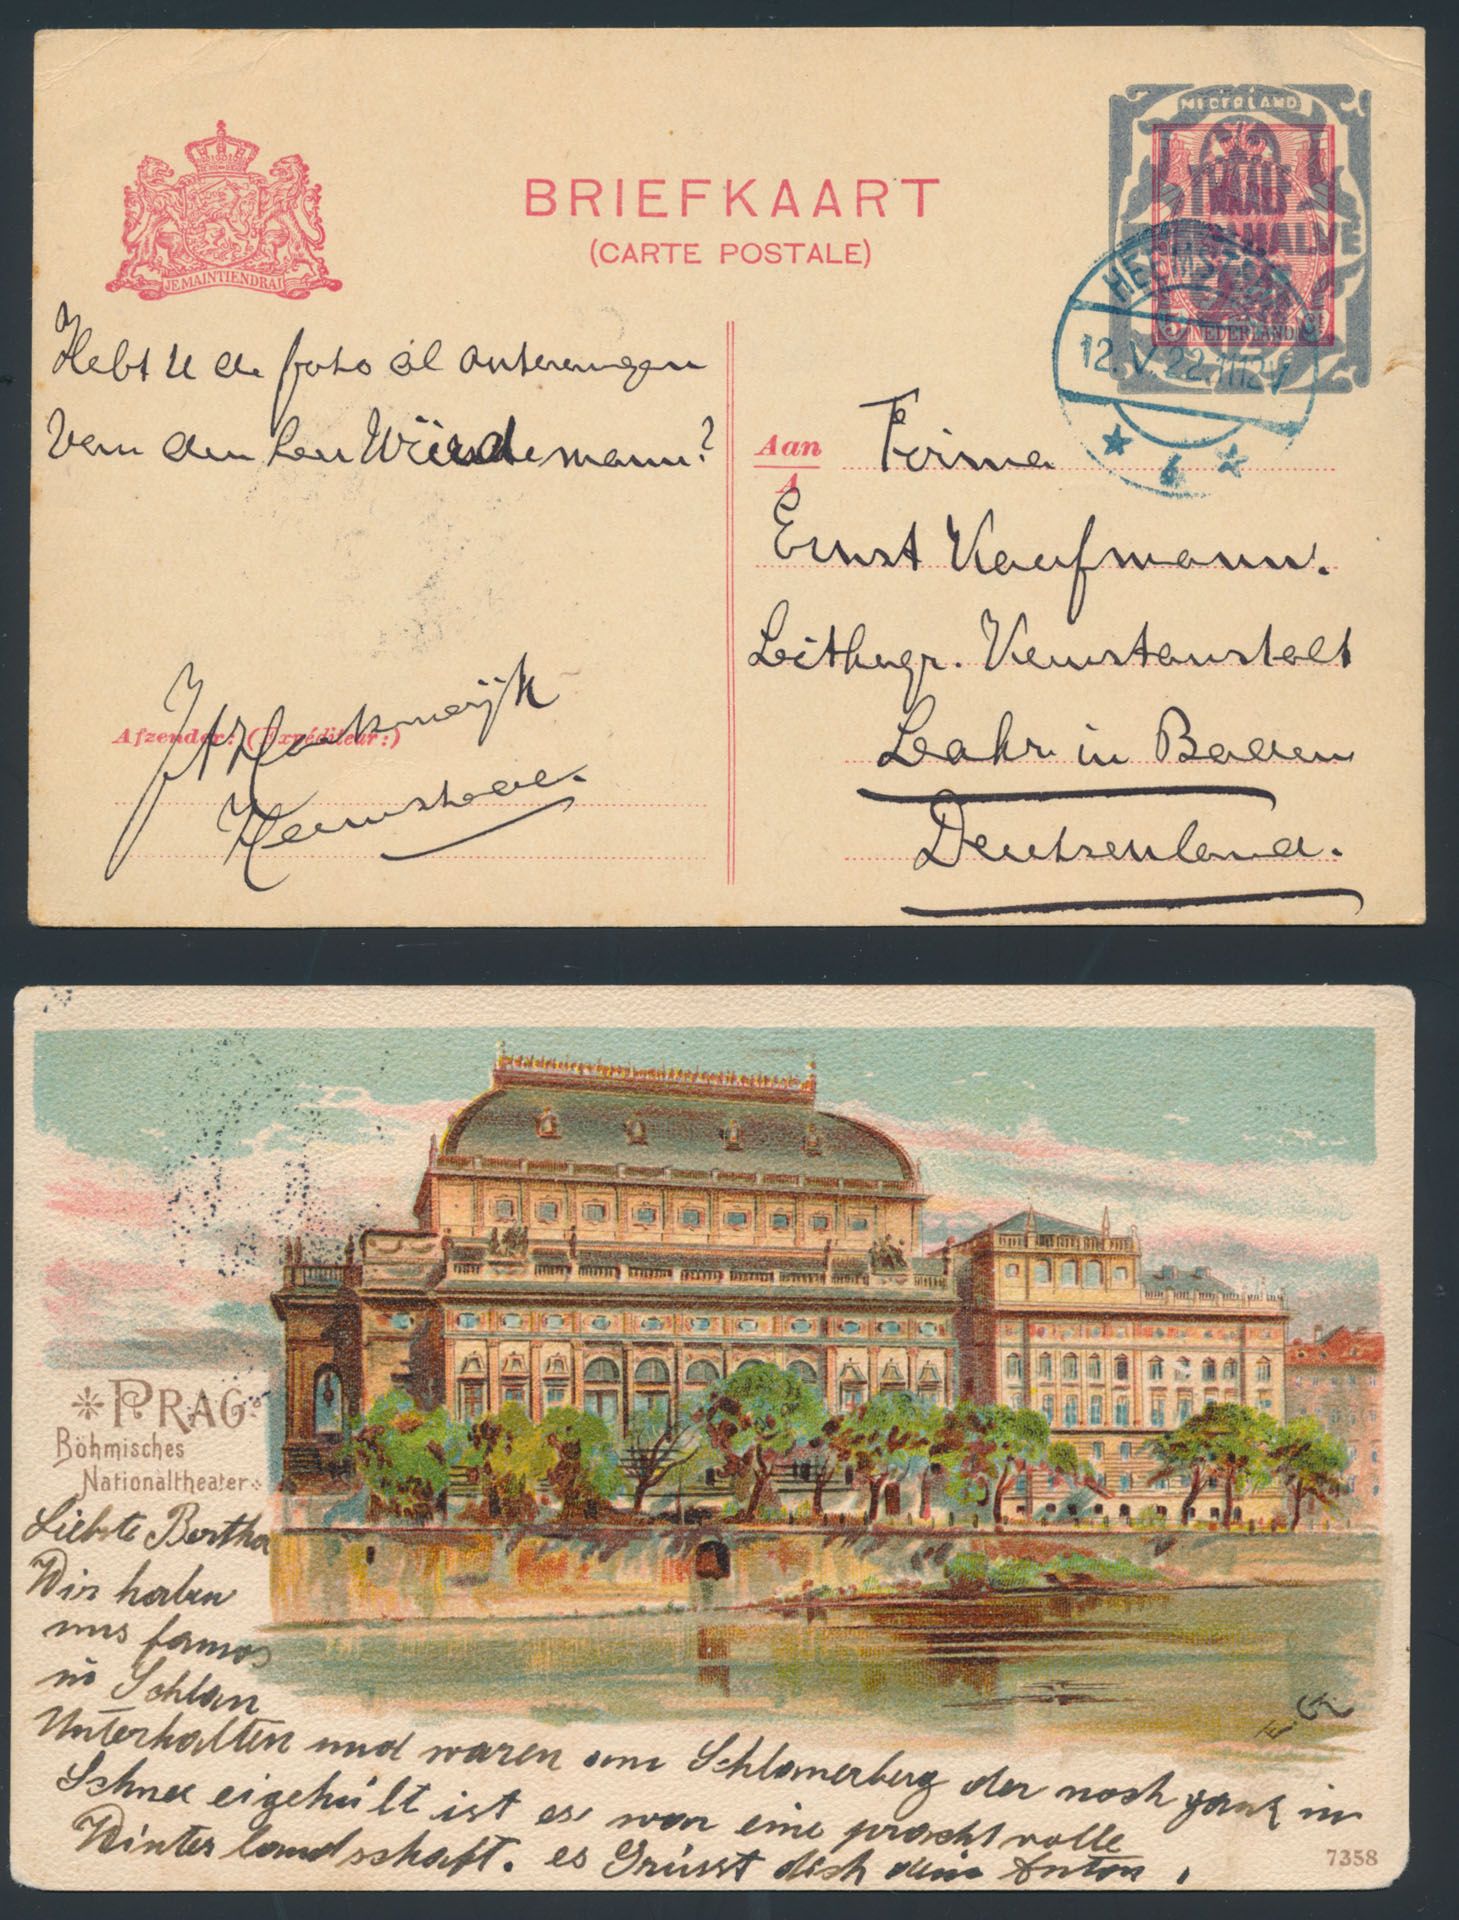 BRIEFKAART
(CARTE POSTALE)
JE MAINTIENDRAI
NEDERLAND
TWAALF
HALVE
5 NEDERLAND Ct
12.V.22.11-12V
6
Hebt U de foto al ontvangen
Van den heer Wiedemann?
Afzender: (Expéditeur:)
Heemstede.
Aan
A
Firma
Ernst Kaufmann.
Lithogr. Kunstanstalt
Lahr in Baden
Deutschland.
PRAG
Böhmisches
Nationaltheater
Liebste Bertha
Wir haben
uns famos
in Schlan
Unterhalten und waren am Schlanerberg der noch ganz in
Schnee eigehült ist es war eine prachtvolle
Winterlandschaft. es Grüsst dich dein Anton.
7358